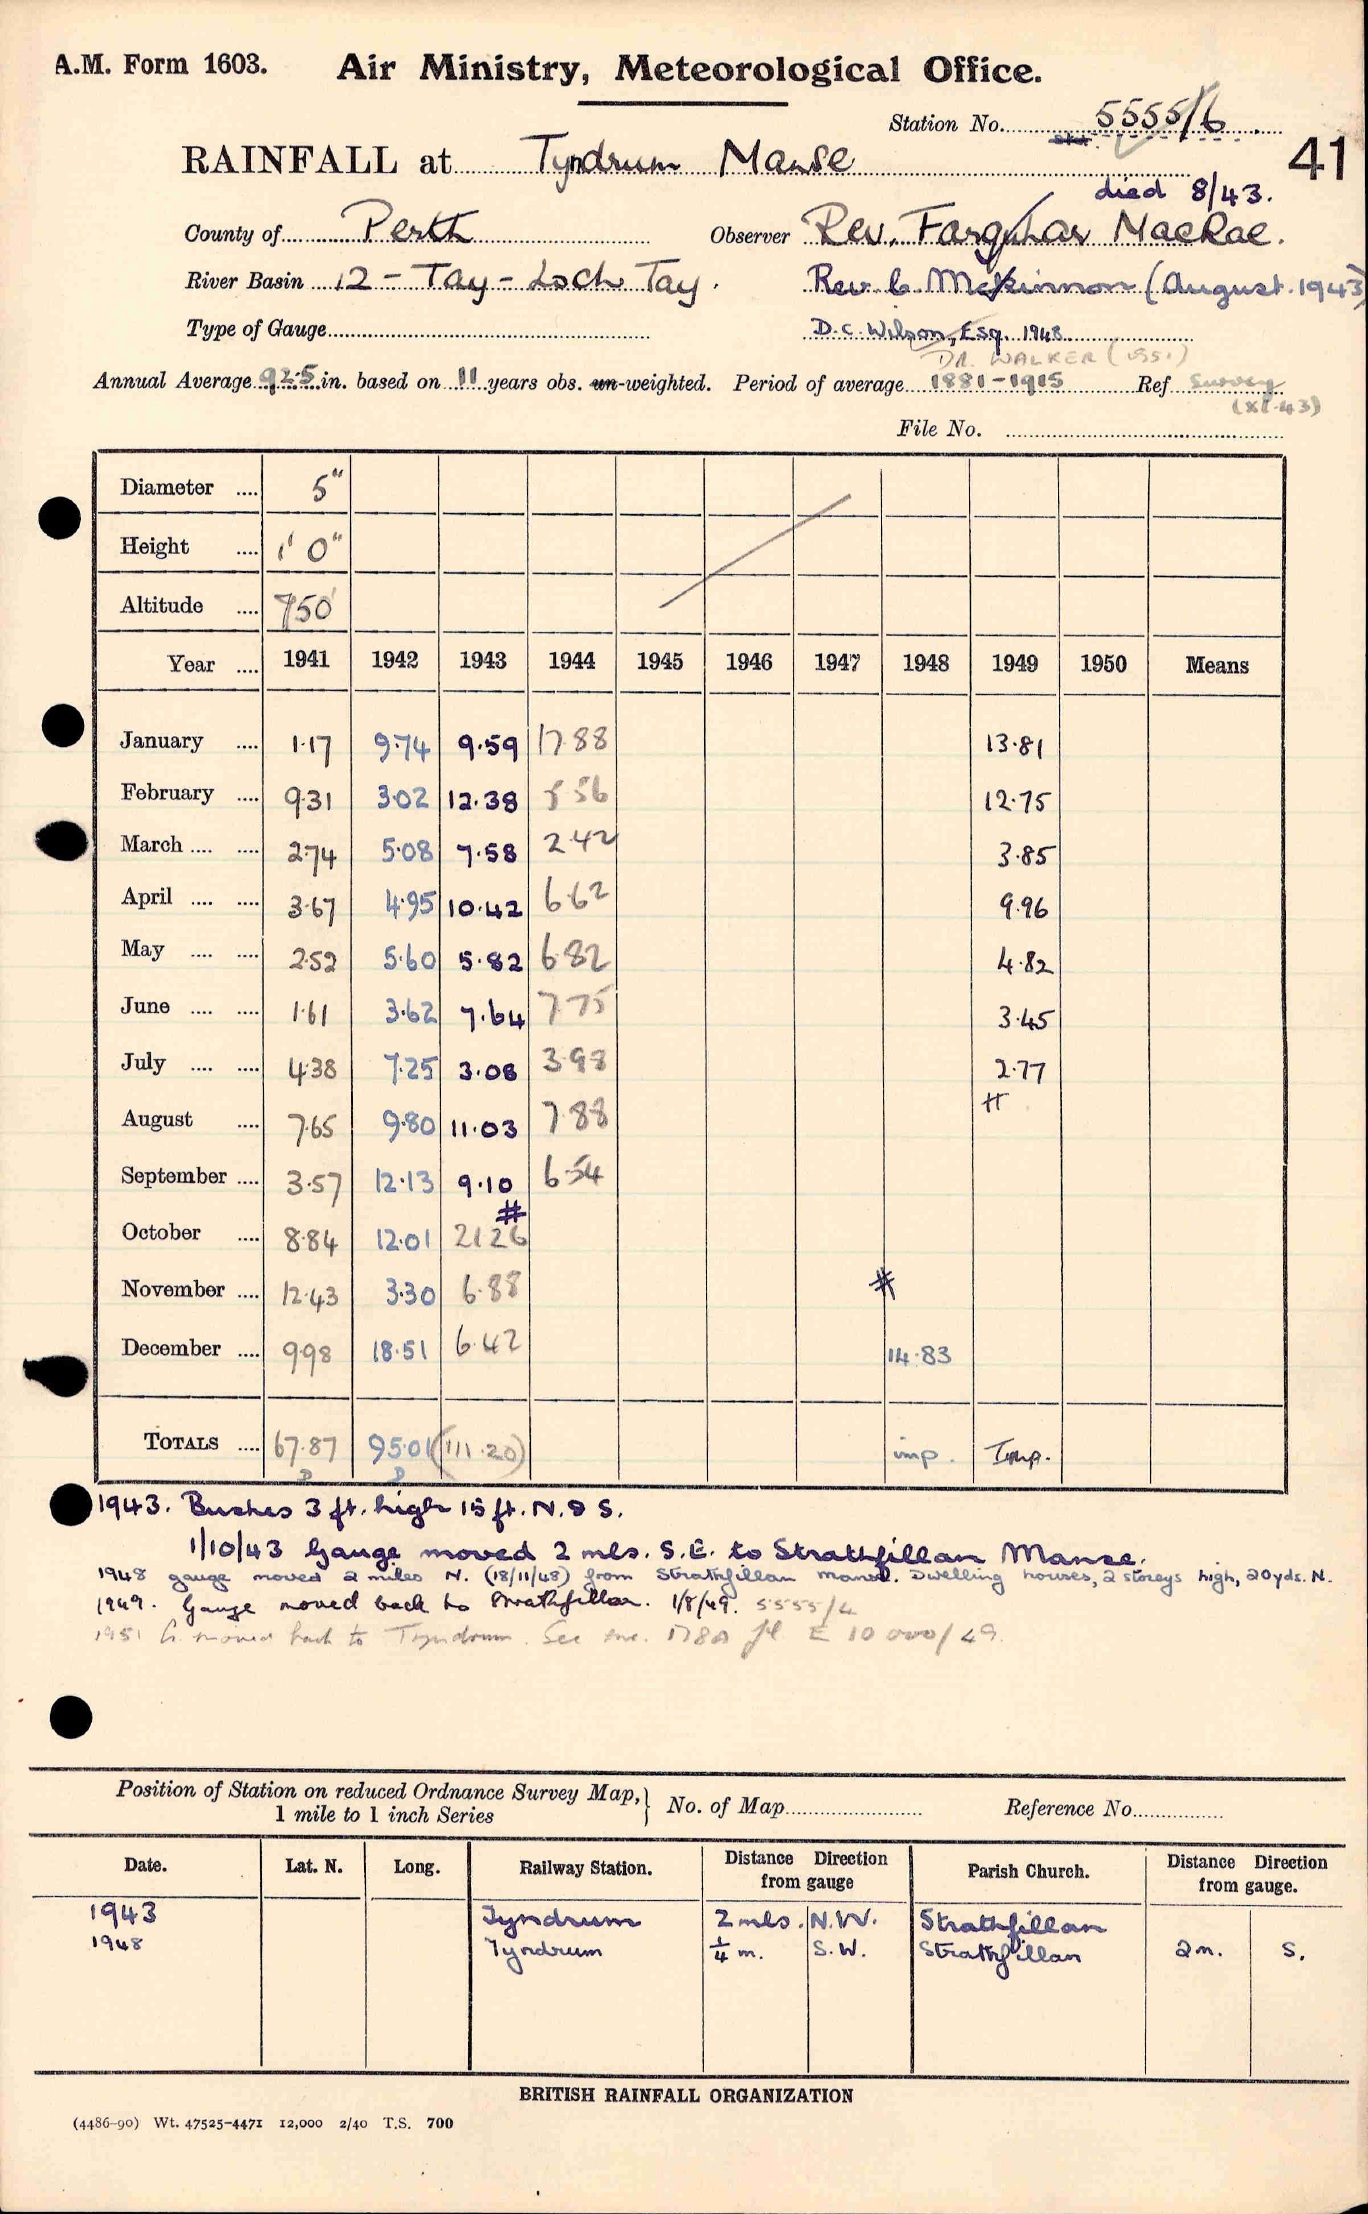 A.M. Form 1603. Air Ministry, Meteorological Office.
Station No. 5555/6
41
RAINFALL at Tyndrum Manse
died 8/43.
County of Perth Observer Rev. Farquhar MacRae.
River Basin 12 - Tay - Loch Tay. Rev. C. McKinnon (August 1943)
Type of Gauge D.C. Wilson, Esq. 1948
DR. WALKER (1951)
Annual Average 92.5 in. based on 11 years obs. un-weighted. Period of average 1881-1915 Ref Survey
(XI.43)
File No.
Diameter 5"
Height 1' 0"
Altitude 750'
Year 1941 1942 1943 1944 1945 1946 1947 1948 1949 1950 Means
January 1.17 9.74 9.59 17.88 13.81
February 9.31 3.02 12.38 5.56 12.75
March 2.74 5.08 7.58 2.42 3.85
April 3.67 4.95 10.42 6.62 9.96
May 2.52 5.60 5.82 6.82 4.82
June 1.61 3.62 7.64 7.75 3.45
July 4.38 7.25 3.08 3.98 2.77
#
August 7.65 9.80 11.03 7.88
September 3.57 12.13 9.10 6.54
#
October 8.84 12.01 21.26
November 12.43 3.30 6.88 #
December 9.98 18.51 6.42 14.83
TOTALS 67.87 95.01 (111.20) imp. Imp.
1943. Bushes 3 ft. high 15 ft. N. & S.
1/10/43 Gauge moved 2 mls. S.E. to Strathfillan Manse.
1948 gauge moved 2 miles N. (18/11/48) from Strathfillan manse. Dwelling houses, 2 storeys high, 20 yds. N.
1949. Gauge moved back to Strathfillan. 1/8/49. 5555/4
1951 G. moved back to Tyndrum. See 178A E 10000/49
Position of Station on reduced Ordnance Survey Map, } No. of Map Reference No.
1 mile to 1 inch Series
Date. Lat. N. Long. Railway Station. Distance Direction from gauge Parish Church. Distance Direction from gauge.
1943 Tyndrum 2 mls. N.W. Strathfillan
1948 Tyndrum 1/4 m. S.W. Strathfillan 2 m. S.
BRITISH RAINFALL ORGANIZATION
(4486-90) Wt. 47525-4471 12,000 2/40 T.S. 700